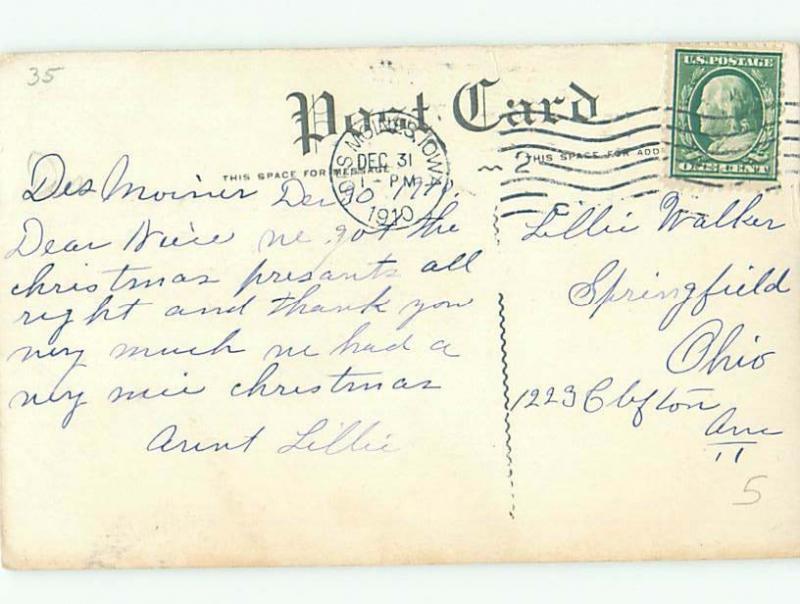 35
Post Card
THIS SPACE FOR MESSAGE
THIS SPACE FOR ADD
U.S. POSTAGE
ONE CENT
DES MOINES, IOWA
DEC 31
1 - PM
1910
2
Des Moines Dec 30
Dear Niece we got the
christmas presants all
right and thank you
very much we had a
very nice christmas
Aunt Lillie
Lillie Walker
Springfield
Ohio
1223 Clifton
Ave
11
5